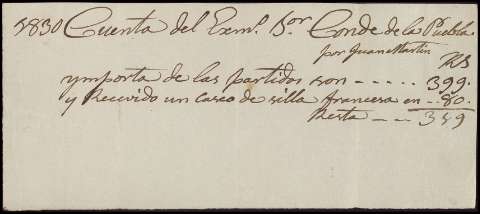 1830 Cuenta del Exmo. Sor. Conde de la Puebla
por Juan Martin
RS
ymporta de las partidas son ----- 399.
y Recivido un casco de silla francesa en -- 80.
Resta --- 319